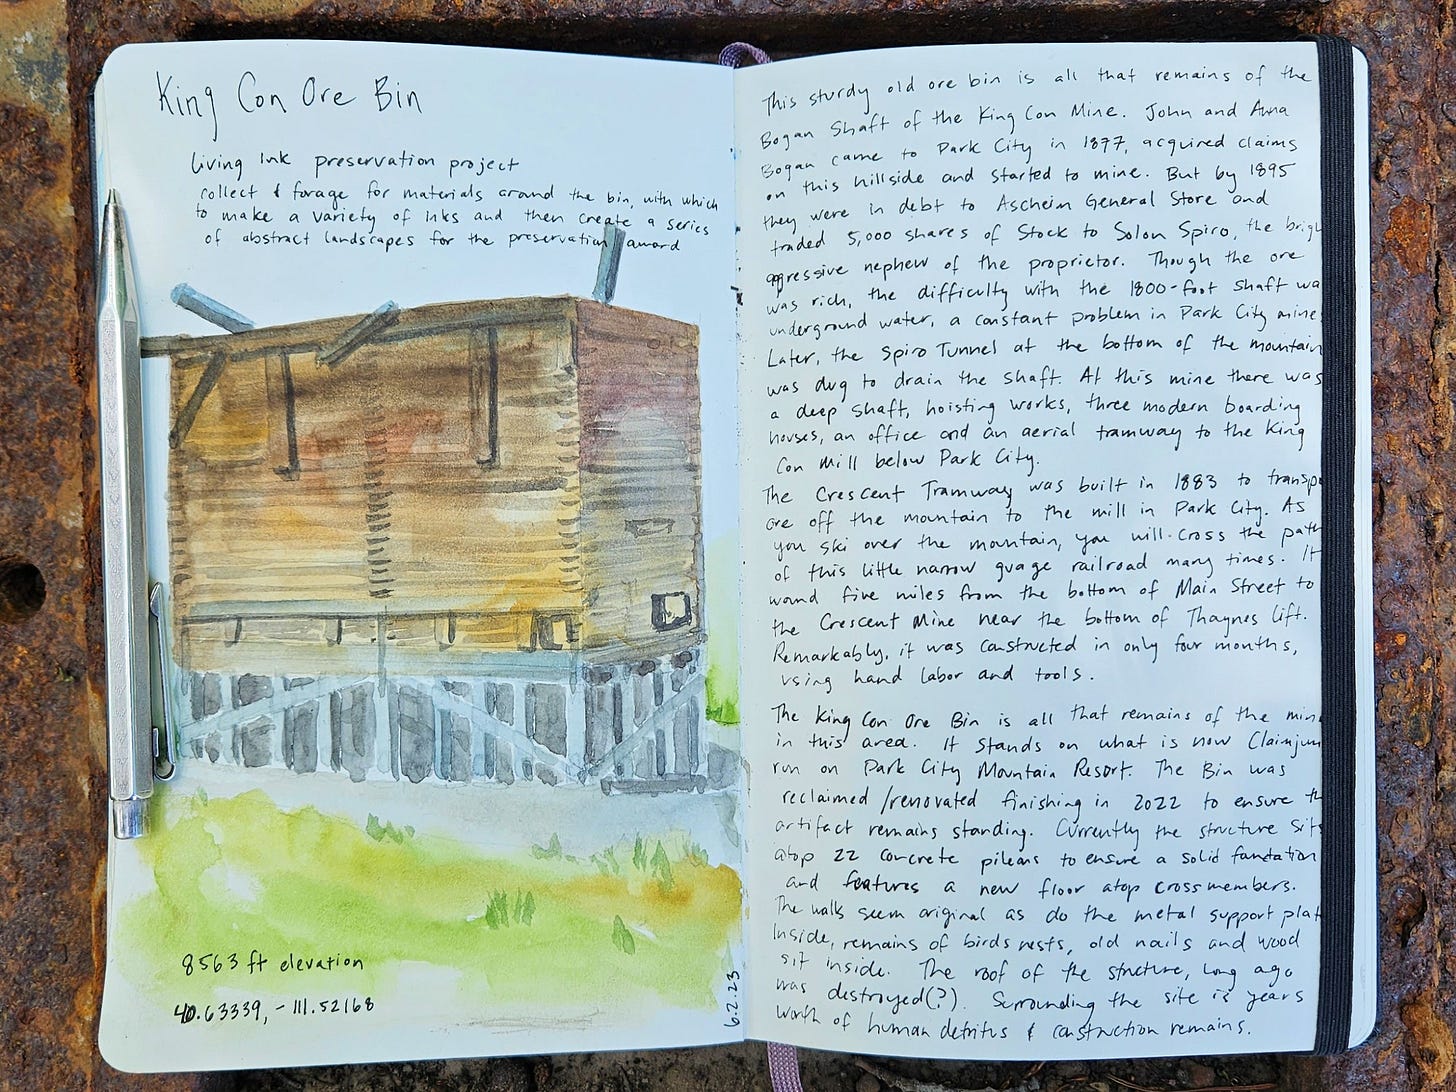 King Con Ore Bin
Living Ink preservation project
collect & forage for materials around the bin, with which
to make a variety of inks and then create a series
of abstract landscapes for the preservation award
8563 ft elevation
40.63339, -111.52168
6.2.23
This sturdy old ore bin is all that remains of the
Bogan Shaft of the King Con Mine. John and Anna
Bogan came to Park City in 1877, acquired claims
on this hillside and started to mine. But by 1895
they were in debt to Ascheim General Store and
traded 5,000 shares of Stock to Solon Spiro, the brigh
aggressive nephew of the proprietor. Though the ore
was rich, the difficulty with the 1800-foot shaft wa
underground water, a constant problem in Park City mine
Later, the Spiro Tunnel at the bottom of the mountain
was dug to drain the shaft. At this mine there was
a deep shaft, hoisting works, three modern boarding
houses, an office and an aerial tramway to the King
Con Mill below Park City.
The Crescent Tramway was built in 1883 to transp
ore off the mountain to the mill in Park City. As
you ski over the mountain, you will cross the path
of this little narrow guage railroad many times. It
wound five miles from the bottom of Main Street to
the Crescent Mine near the bottom of Thaynes lift.
Remarkably, it was constructed in only four months,
using hand labor and tools.
The King Con Ore Bin is all that remains of the min
in this area. It stands on what is now Claimjum
run on Park City Mountain Resort. The Bin was
reclaimed/renovated finishing in 2022 to ensure th
artifact remains standing. Currently the structure sits
atop 22 concrete pilears to ensure a solid fundation
and features a new floor atop crossmembers.
The walls seem original as do the metal support plat
Inside, remains of birds nests, old nails and wood
sit inside. The roof of the structure, long ago
was destroyed(?). Surrounding the site is years
worth of human detritus & construction remains.